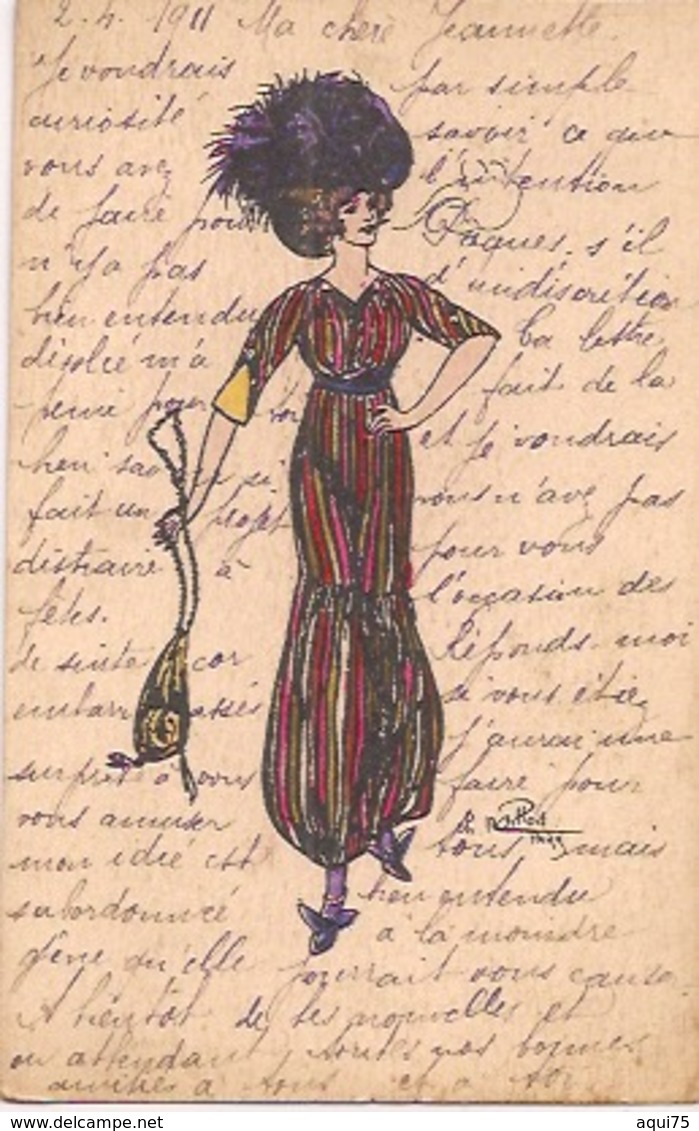 2. 4. 1911 Ma chère Jeannette.
Je voudrais par simple
curiosité savoir ce que
vous avez l'intention
de faire pour Pâques, s'il
n'y a pas d'indiscrétion
bien entendu La lettre
m'a fait de la
peine pour toi et je voudrais
bien savoir si vous n'avez pas
fait un projet pour vous
distraire à l'occasion des
fêtes. Réponds-moi
de suite car si vous étiez
embarrassés j'aurai une
surprise à vous faire pour
vous amuser tous, mais
mon idée est bien entendu
subordonnée à la moindre
gêne qu'elle pourrait vous causer
A bientôt de tes nouvelles et
en attendant, toutes nos bonnes
amitiés à tous et à toi
www.delcampe.net
aqui75